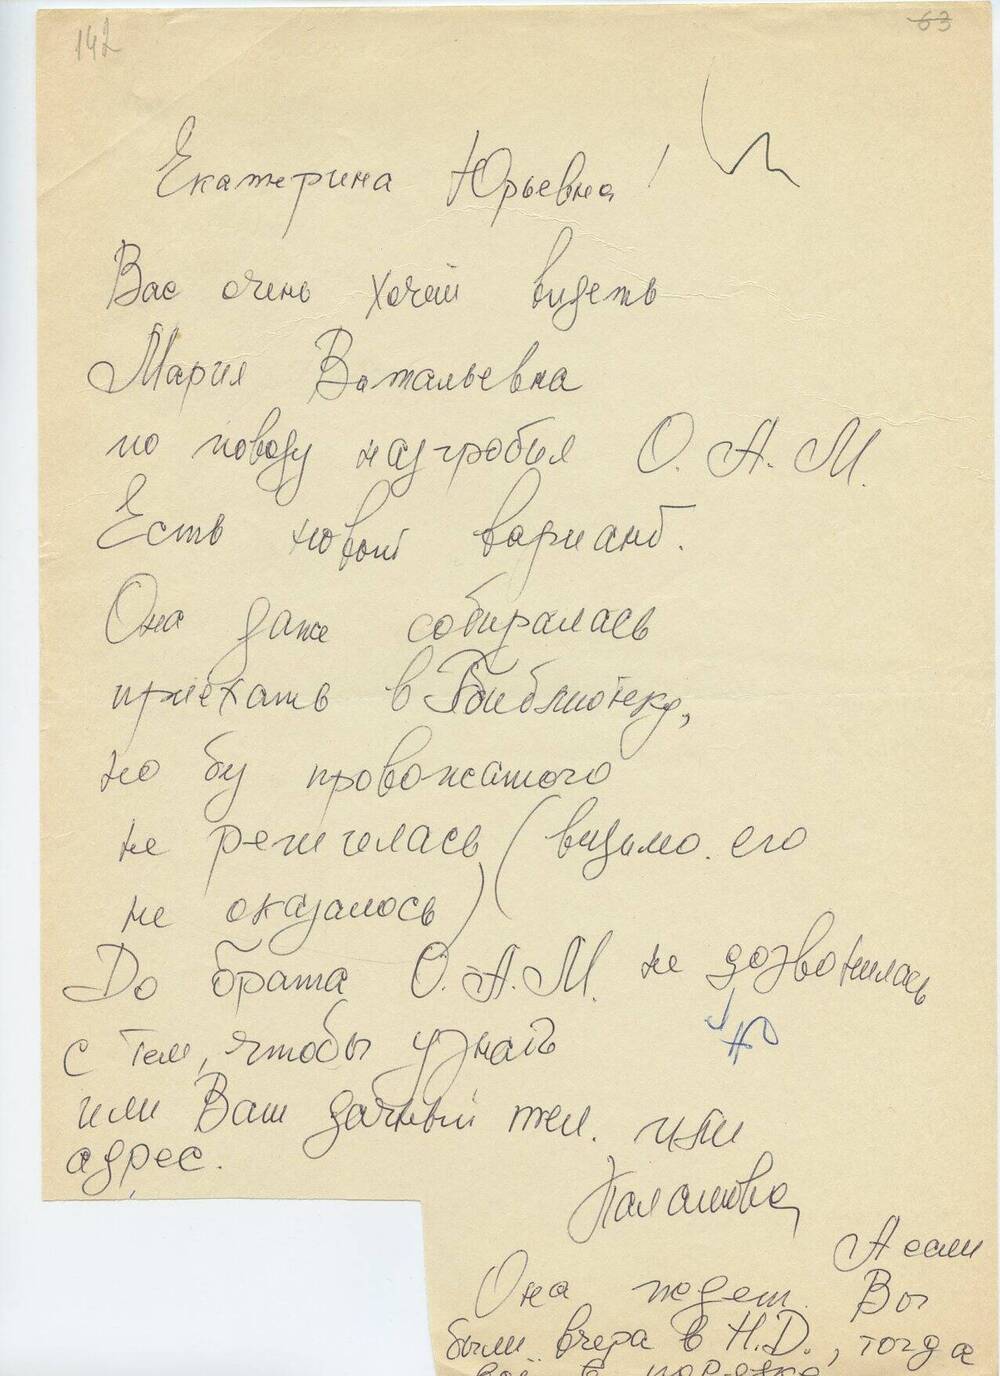 142
63
Екатерина Юрьевна!
Вас очень хочет видеть
Мария Витальевна
по поводу надгробья О. А. М.
Есть новый вариант.
Она даже собиралась
приехать в Библиотеку,
но без провожатого
не решилась (видимо его
не оказалось)
До брата О. А. М. не дозвонилась
с тем, чтобы узнать
или Ваш дачный тел. или
адрес.
А если
Она ждет. Вы
были вчера в Н.Д., тогда
всё в порядке